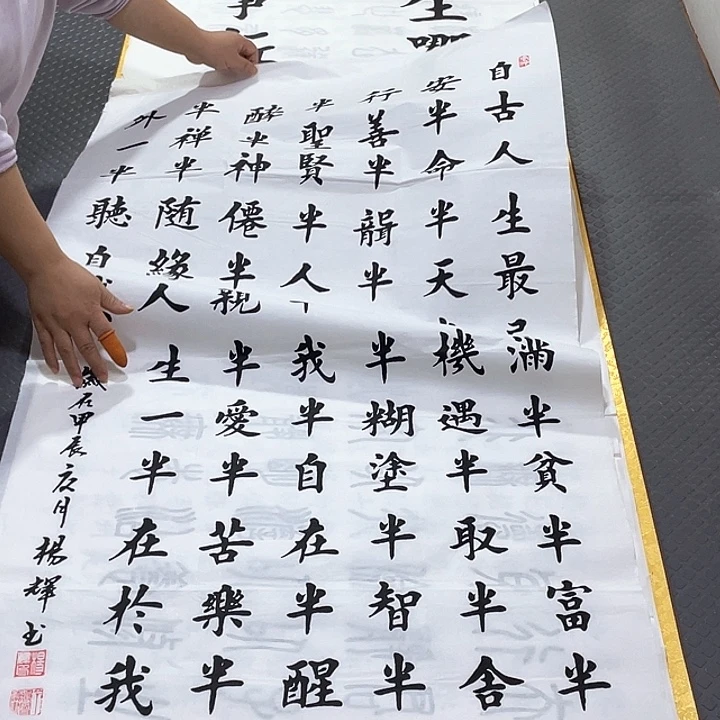 自古人生最忌滿半貧半富半
安半命半天機遇半取半舍
行善半聾半半糊塗半智半
半聖賢半人我半自在半醒
醉半神僊半親半愛半苦樂半
半禪半随緣人生一半在於我
外一半聽自
石甲辰月楊輝书